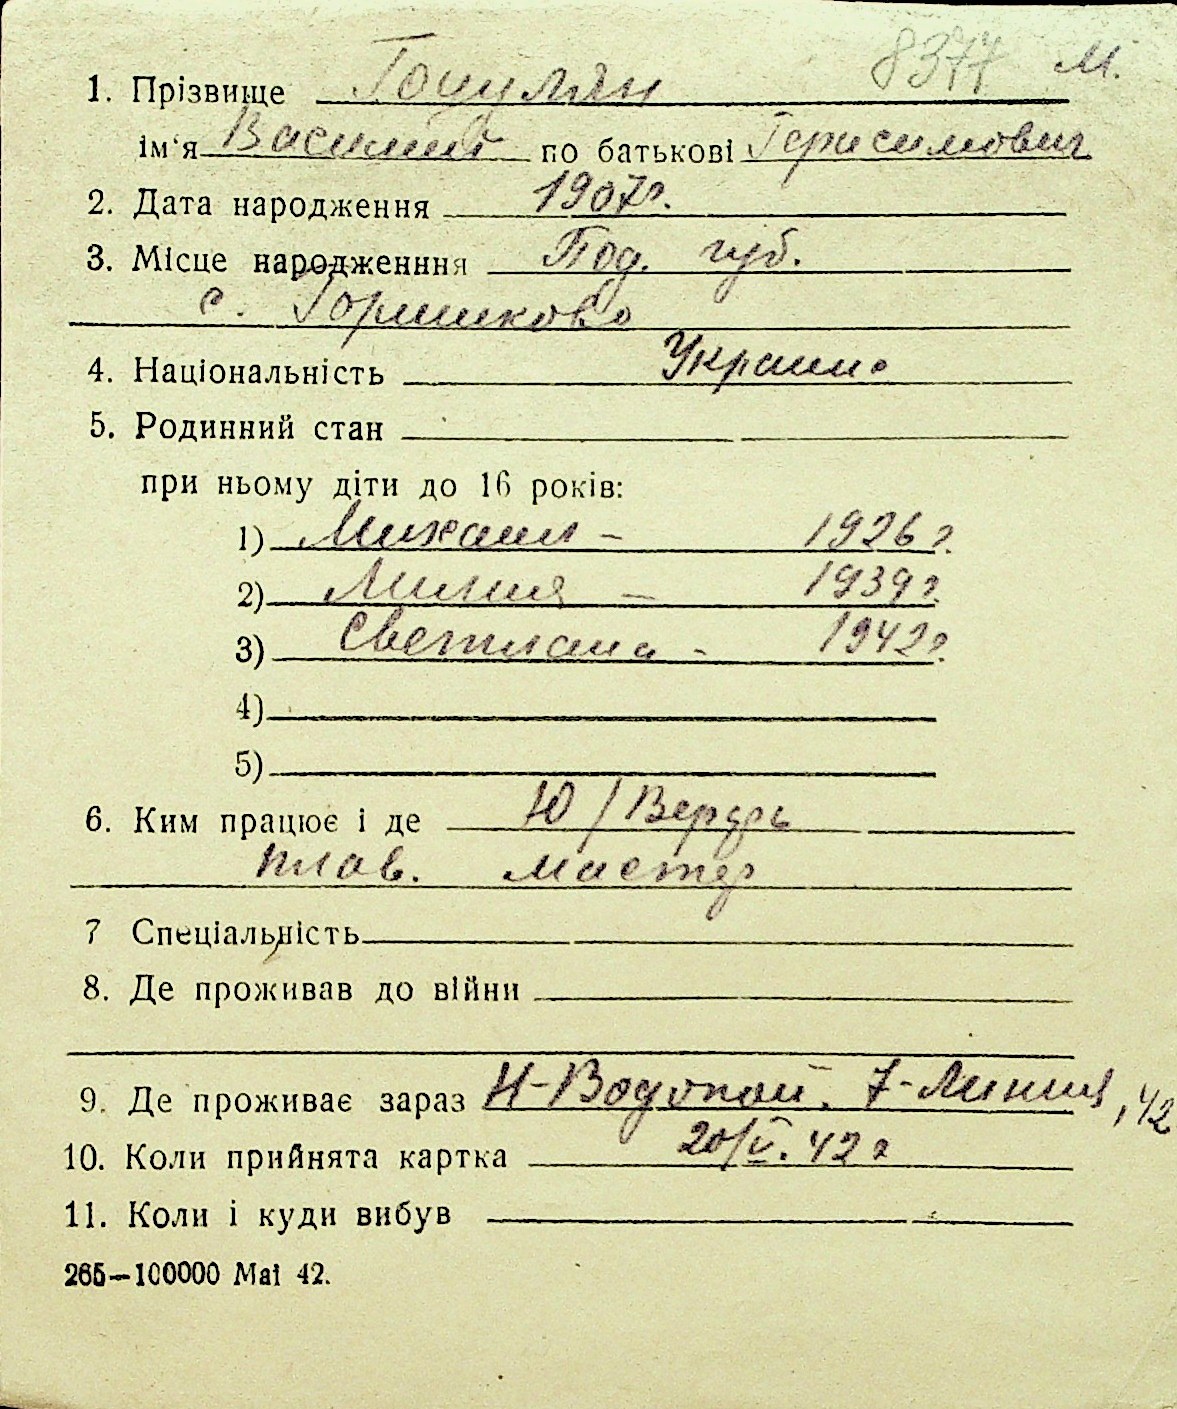 8377 М.
1. Прізвище Гоцулян
ім‘я Василий по батькові Герасимович
2. Дата народження 1907г.
3. Місце народженння Под. губ.
с. Горишково
4. Національність Украин.
5. Родинний стан
при ньому діти до 16 років:
1) Михаил – 1926 г.
2) Лилия – 1939 г.
3) Светлана – 1942 г.
4)
5)
6. Ким працює і де Ю/Верфь
плав. мастер
7 Спеціальність
8. Де проживав до війни
9. Де проживає зараз Н-Водопой. 7-Линия, 42
10. Коли прийнята картка 20/V. 42 г
11. Коли і куди вибув
265—100000 Маі 42.